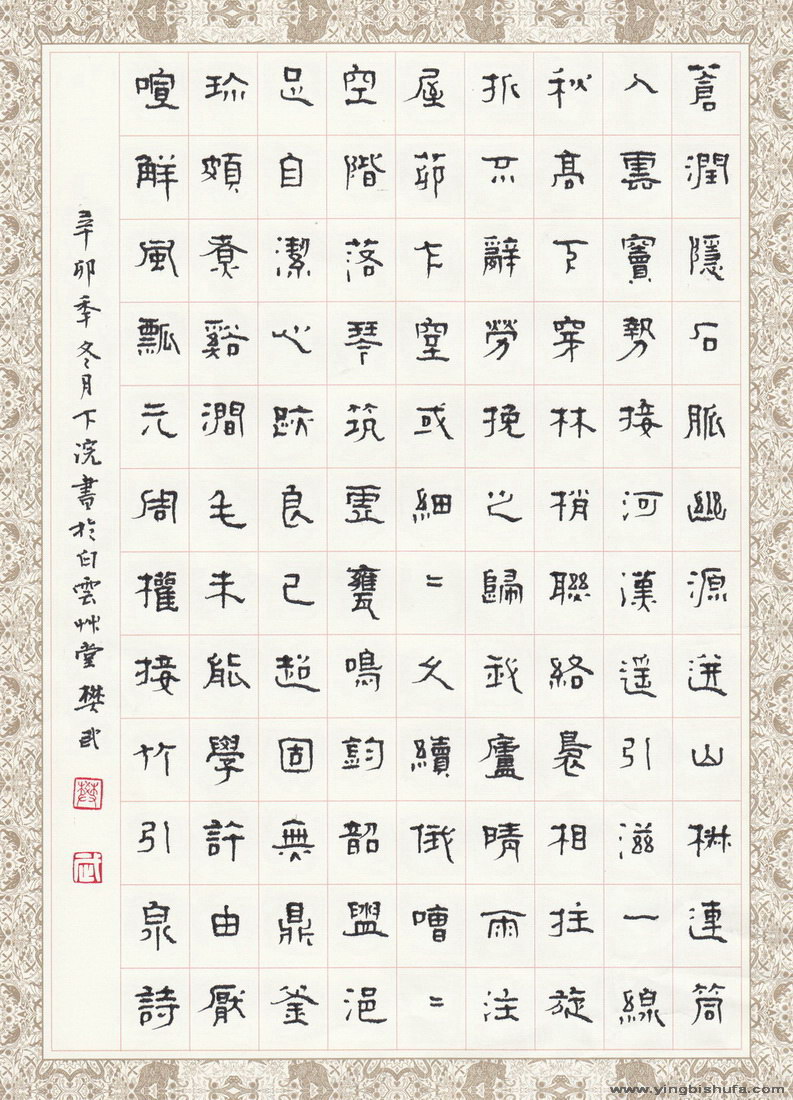 蒼潤隱石脈幽源迸山椒連筒
入雲竇勢接河漢遥引滋一線
秋高下穿林梢聯絡裊相拄旋
折不辭勞挽之歸我廬晴雨注
屋茆乍窒或細〻久續俄嘈〻
空階落琴筑虛甕鳴鈞韶盥浥
足自潔心跡良已超固無鼎釜
珍頗煮谿澗毛未能學許由厭
喧觧風瓢元周權接竹引泉詩
辛卯季冬月下浣書於白雲艸堂樊武
樊
武
www.yingbishufa.com